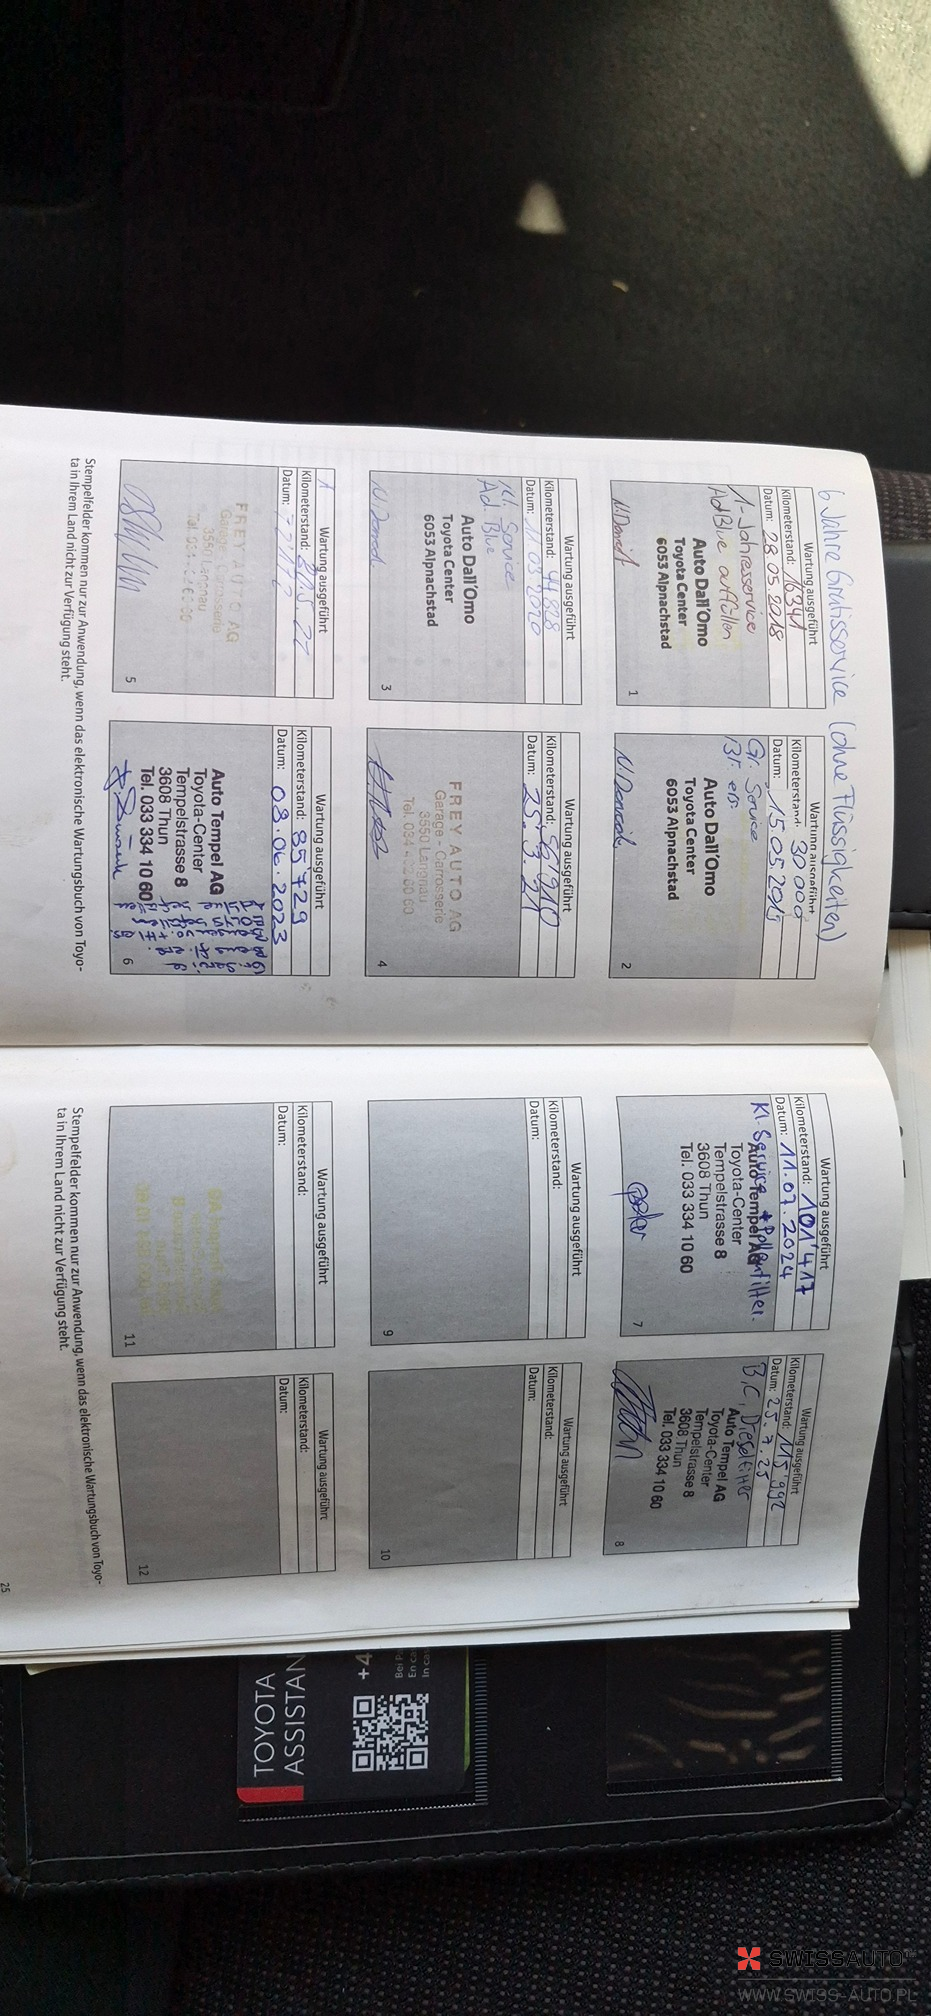 6 Jahre Gratisservice (ohne Flüssigkeiten)
Wartung ausgeführt
Kilometerstand: 16341
Datum: 28.05.2018
1-Jahresservice
AdBlue auffüllen
Auto Dall'Omo
Toyota Center
6053 Alpnachstad
1
Wartung ausgeführt
Kilometerstand: 30000
Datum: 15.05.2019
Gr. Service
Auto Dall'Omo
Toyota Center
6053 Alpnachstad
2
Wartung ausgeführt
Kilometerstand:
Datum: 11.05.2020
Kl. Service
Ad. Blue
Auto Dall'Omo
Toyota Center
6053 Alpnachstad
3
Wartung ausgeführt
Kilometerstand:
Datum: 25.3.21
FREY AUTO AG
Garage - Carrosserie
3550 Langnau
Tel. 034 402 60 60
4
Wartung ausgeführt
Kilometerstand:
Datum:
FREY AUTO AG
Garage - Carrosserie
3550 Langnau
5
Wartung ausgeführt
Kilometerstand: 85'729
Datum: 08.06.2023
Auto Tempel AG
Toyota-Center
Tempelstrasse 8
3608 Thun
Tel. 033 334 10 60
6
Stempelfelder kommen nur zur Anwendung, wenn das elektronische Wartungsbuch von Toyo-
ta in Ihrem Land nicht zur Verfügung steht.
Wartung ausgeführt
Kilometerstand: 101'417
Datum: 11.07.2024
Kl. Service + Pollenfilter.
Auto Tempel AG
Toyota-Center
Tempelstrasse 8
3608 Thun
Tel. 033 334 10 60
7
Wartung ausgeführt
Kilometerstand: 115'992
Datum: 25.7.25
B, C, Dieselfilter
Auto Tempel AG
Toyota-Center
Tempelstrasse 8
3608 Thun
Tel. 033 334 10 60
8
Wartung ausgeführt
Kilometerstand:
Datum:
9
Wartung ausgeführt
Kilometerstand:
Datum:
10
Wartung ausgeführt
Kilometerstand:
Datum:
11
Wartung ausgeführt
Kilometerstand:
Datum:
12
Stempelfelder kommen nur zur Anwendung, wenn das elektronische Wartungsbuch von Toyo-
ta in Ihrem Land nicht zur Verfügung steht.
25
TOYOTA
ASSISTAN
+4
SWISSAUTO
WWW.SWISS-AUTO.PL